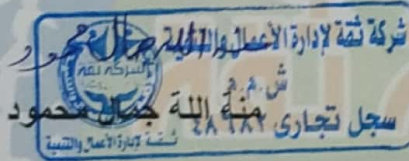 شركة ثقة لإدارة الأعمال والتنمية
ش.م.م
منة الله جمال محمود
سجل تجارى
الشركة ثقة
ثقة لإدارة الأعمال والتنمية